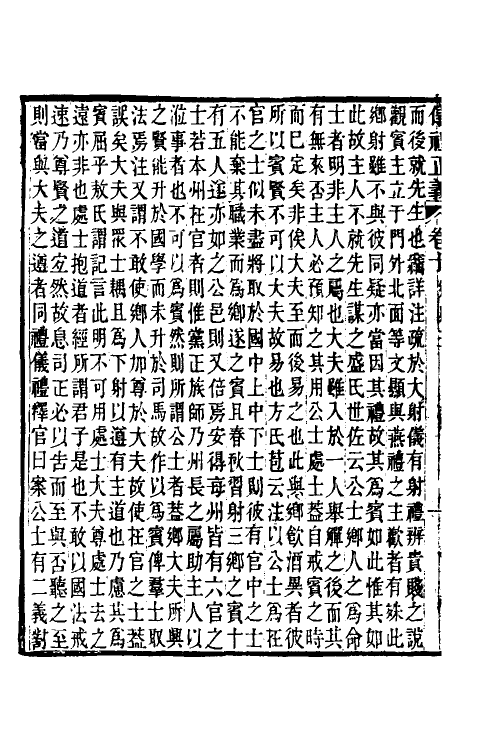 儀禮正義 卷十
而後就先生也竊詳注疏於大射儀有射禮辨貴賤之說
觀賓主立于門外北面等文顯與燕禮之主歡者有殊此
鄉射雖不與彼同疑亦當因其禮故其爲賓如此惟其如
此故主人不就先生謀之盛氏世佐云公士鄉人之爲命
士者明非主人之屬也大夫雖入於一人舉觶之後而其
有無來否主人必預知之其用公士處士蓋自戒賓之時
而巳定矣非俟大夫至而後易之也此與鄉飮酒異者彼
所以賓賢不可以大夫故易也方氏苞云注以公士爲在
官之士似未盡將取於國中上中下士則彼有官中之士
不能棄其職業而爲鄉遂之賓且春秋習射三鄉之賓十
有五人遂亦如之公邑則又倍焉安得每州皆有六官之
士若本州在官者則惟黨正族師乃州長之屬助主人以
涖事者也不可以爲賓然則所謂公士者蓋鄉大夫所興
之賢能升於國學而未升於司馬故作以爲賓俾羣士取
法焉注又謂不敢使鄉人加尊於大夫故使在官之士蓋
誤矣大夫與眾士耦且爲下射以遵有主道也乃慮其爲
賓屈乎敖氏謂記言此明不可用處士大夫尊處士去之
遠亦非也處士抱道者經所謂君子是也不敢以國法戒
速乃尊賢之道宜然故息司正必以告而至與否聽之至
則當與大夫之遵者同禮儀禮釋官曰案公士有二義對